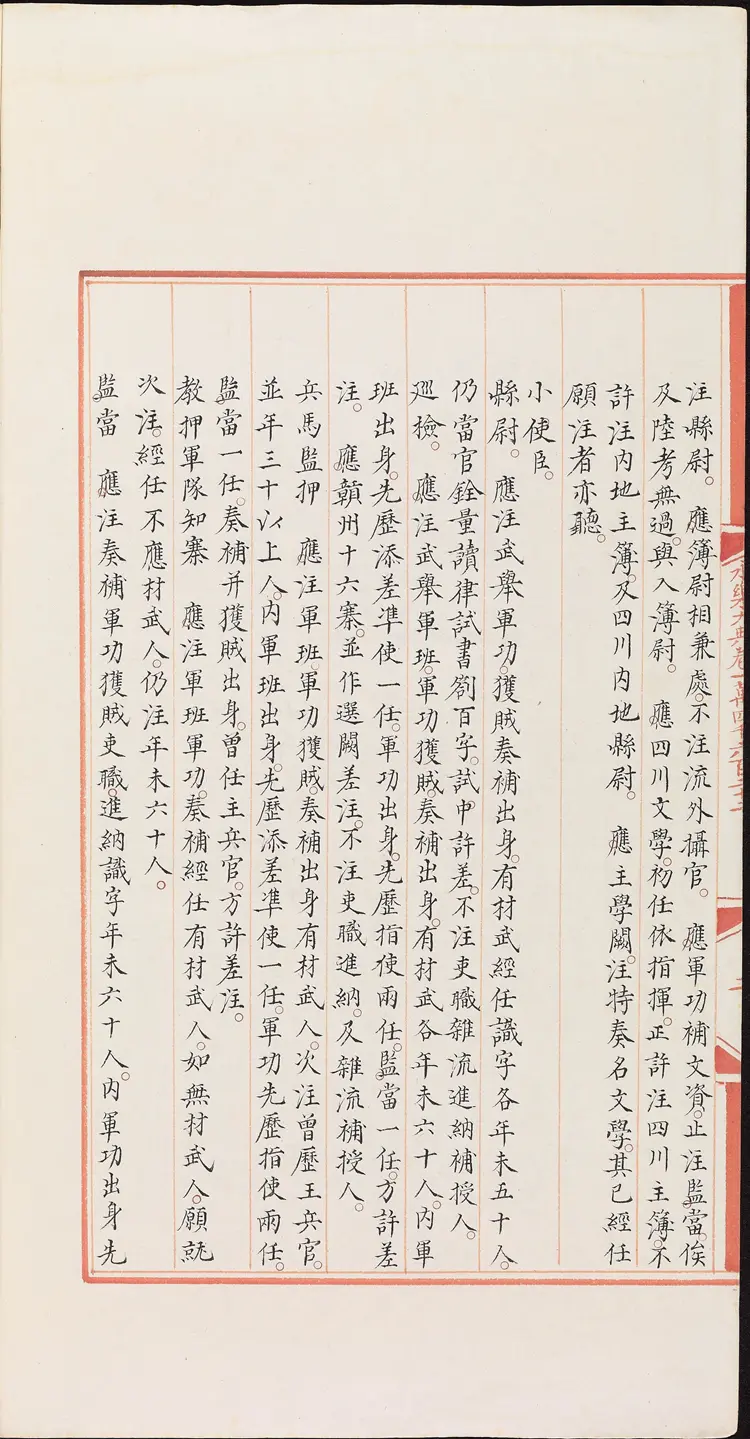 注縣尉。應簿尉相兼處。不注流外攝官。應軍功補文資。止注監當。俟
及陸考無過。與入簿尉。應四川文學。初任依指揮。正許注四川主簿。不
許注內地主簿。及四川內地縣尉。應主學闕。注特奏名文學。其已經任
願注者亦聽。
小使臣。
縣尉。應注武舉軍功。獲賊奏補出身。有材武經任識字各年未五十人。
仍當官銓量讀律試書劄百字。試中許差。不注吏職雜流進納補授人。
廵檢。應注武舉軍班。軍功獲賊。奏補出身。有材武各年未六十人。內軍
班出身。先歷添差準使一任。軍功出身。先歷指使兩任。監當一任。方許差
注。應贑州十六寨。並作選闕差注。不注吏職進納。及雜流補授人。
兵馬監押應注軍班。軍功獲賊。奏補出身有材武人。次注曾歷主兵官。
並年三十以上人。內軍班出身。先歷添差準使一任。軍功先歷指使兩任。
監當一任。奏補并獲賊出身。曾任主兵官。方許差注。
教押軍隊知寨應注軍班軍功。奏補經任有材武人。如無材武人。願就
次注。經任不應材武人。仍注年未六十人。
監當應注奏補軍功獲賊吏職。進納識字年未六十人。內軍功出身先
永樂大典卷一萬四千六百二十